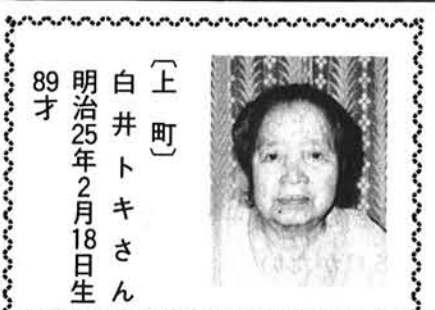 〔上町〕
白井トキさん
明治25年2月18日生
89才